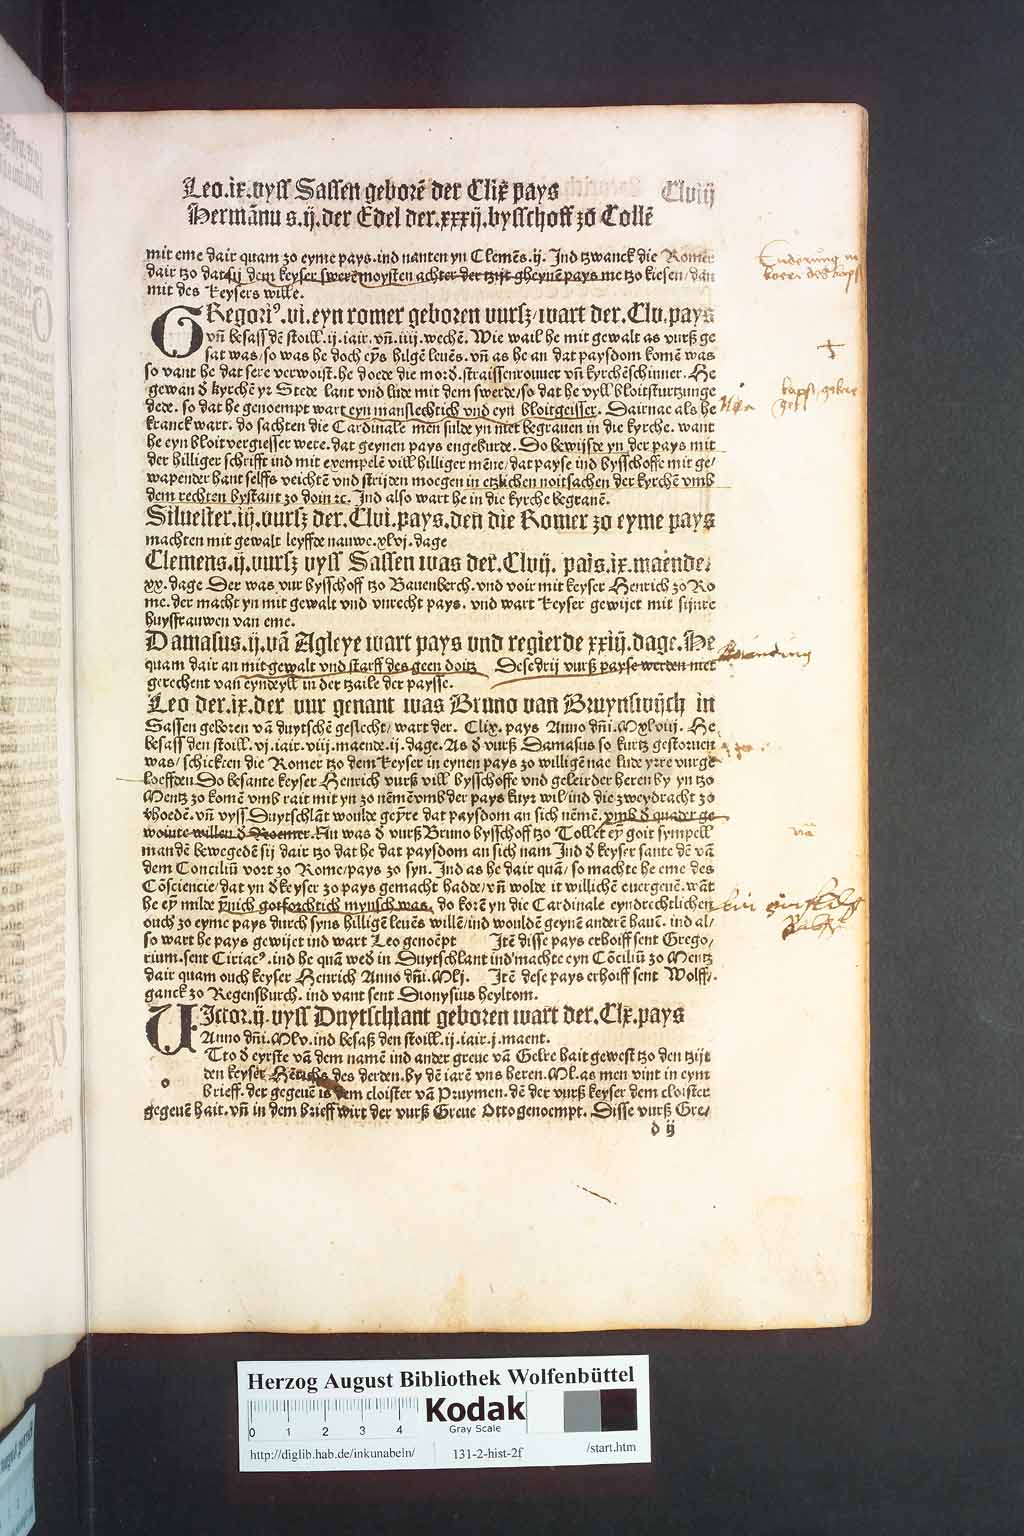 Leo.ix.vyss Sassen geborē der Clix pays Clviij
Hermānu s.ij.der Edel der.xxxij.bysschoff zō Collē
mit eme dair quam zo eyme pays.ind nanten yn Clemēs.ij. Jnd tzwanck die Romer
dair tzo dat sij dem keyser swerē moysten achter der tzijt gheynē pays me tzo kiesen/dan
mit des keysers wille.
GRegoriꝰ.vi.eyn romer geboren vursz/wart der.Clv.pays
vñ besass dē stoill.ij.iair.vñ.iiij.wechē. Wie wail he mit gewalt as vurß ge
sat was/so was he doch eyns hilgē levēs.vñ as he an dat paysdom komē was
so vant he dat sere verwoist.he doede die mord.straissenrouuer vñ kyrchēschinner. He
gewan d kyrchē yr Stede lant vnd lude mit dem swerde/so dat he vyll bloitsturtzunge
dede. so dat he genoempt wart eyn manslechtich vnd eyn bloitgeisser. Dairnae als he
kranck wart. do sachten die Cardinale men sulde yn niet begrauen in die kyrche. want
he eyn bloit vergiesser were.dat geynen pays engeburde. Do bewijsde yn der pays mit
der hilliger schrifft ind mit exempelē vill hilliger mēne/dat payse ind bysschoffe mit ge/
wapender hant selffs veichtē vnd strijden moegen in etzlichen noitsachen der kyrchē vmb
dem rechten bystant zo doin ꝛc. Jnd also wart he in die kyrche begrauē.
Siluester.iij.vursz der.Clvi.pays.den die Romer zo eyme pays
machten mit gewalt leyffde nauwe.xlvj.dage
Clemens.ij.vursz vyss Sassen was der.Clvij. pais.ix.maende/
xx.dage Der was vur bysschoff tzo Bauenberch.vnd voir mit keyser Henrich zo Ro
me.der macht yn mit gewalt vnd vnrecht pays. vnd wart keyser gewijet mit sijnre
huysfrauwen van eme.
Damasus.ij.vā Agleye wart pays vnd regierde xxiij.dage.He
quam dair an mit gewalt vnd starff des geen doitz Dese drij vurß payse werden niet
gerechent van eyndeyll in der tzaile der paysse.
Leo der.ix.der vur genant was Bruno van Bruynswijch in
Sassen geboren vā duytschē geslecht/wart der. Clix.pays Anno dñi.Mxlviij. He
besass den stoill.vj.iair.viij.maende.ij.dage.As d vurß Damasus so kurtz gestoruen
was/schickten die Romer tzo dem keyser in eynen pays zo willigē nae lude yrre vurge
loeffden Do besante keyser Henrich vurß vill bysschoffe vnd geleirder heren by yn tzo
Mentz zo komē vmb rait mit yn zo nēmē vmb der pays kuyr wil/ind die zweydracht zo
vhoedē.vñ vyss Duytschlāt woulde geyre dat paysdom an sich nēmē.vmb d quader ge
wointe willen d Roemer.Nu was d vurß Bruno bysschoff tzo Tollet ey goit sympell
man dē bewegedē sij dair tzo dat he dat paysdom an sich nam Jnd d keyser sante dē vā
dem Conciliū vort zo Rome/pays zo syn. Jnd as he dair quā/so machte he eme des
Cōsciencie/dat yn d keyser zo pays gemacht hadde/vñ wolde it willichē euergeuē.wāt
he ey milde ynich gotforchtich mynsch was. do korē yn die Cardinale eyndrechtlichen
ouch zo eyme pays durch syns hilligē leuēs willē/ind wouldē geynē anderē hauē. ind al/
so wart he pays gewijet ind wart Leo genoēpt Jtē disse pays erhoiff sent Grego/
rium.sent Ciriacꝰ.ind he quā wed in Duytschlant ind machte eyn Cōciliū zo Mentz
dair quam ouch keyser Henrich Anno dñi.Mlj. Jtē dese pays erhoiff sent Wolff/
ganck zo Regensburch. ind vant sent Dionysius heyltom.
VJctor.ij.vyss Duytschlant geboren wart der.Clx.pays
Anno dñi.Mlv.ind besaß den stoill.ij.iair.j.maent.
o Tto d eyrste vā dem namē ind ander greue vā Gelre hait gewest tzo den tzijt
den keyser Hērichs des derden.by dē iarē vns heren.Ml.as men vint in eym
brieff. der gegeuē is dem cloister vā Pruymen.dē der vurß keyser dem cloister
gegeuē hait.vñ in dem brieff wirt der vurß Greue Otto genoempt. Disse vurß Gre/
d ij
Herzog August Bibliothek Wolfenbüttel
0 1 2 3 4
Kodak
Gray Scale
http://diglib.hab.de/inkunabeln/ 131-2-hist-2f /start.htm